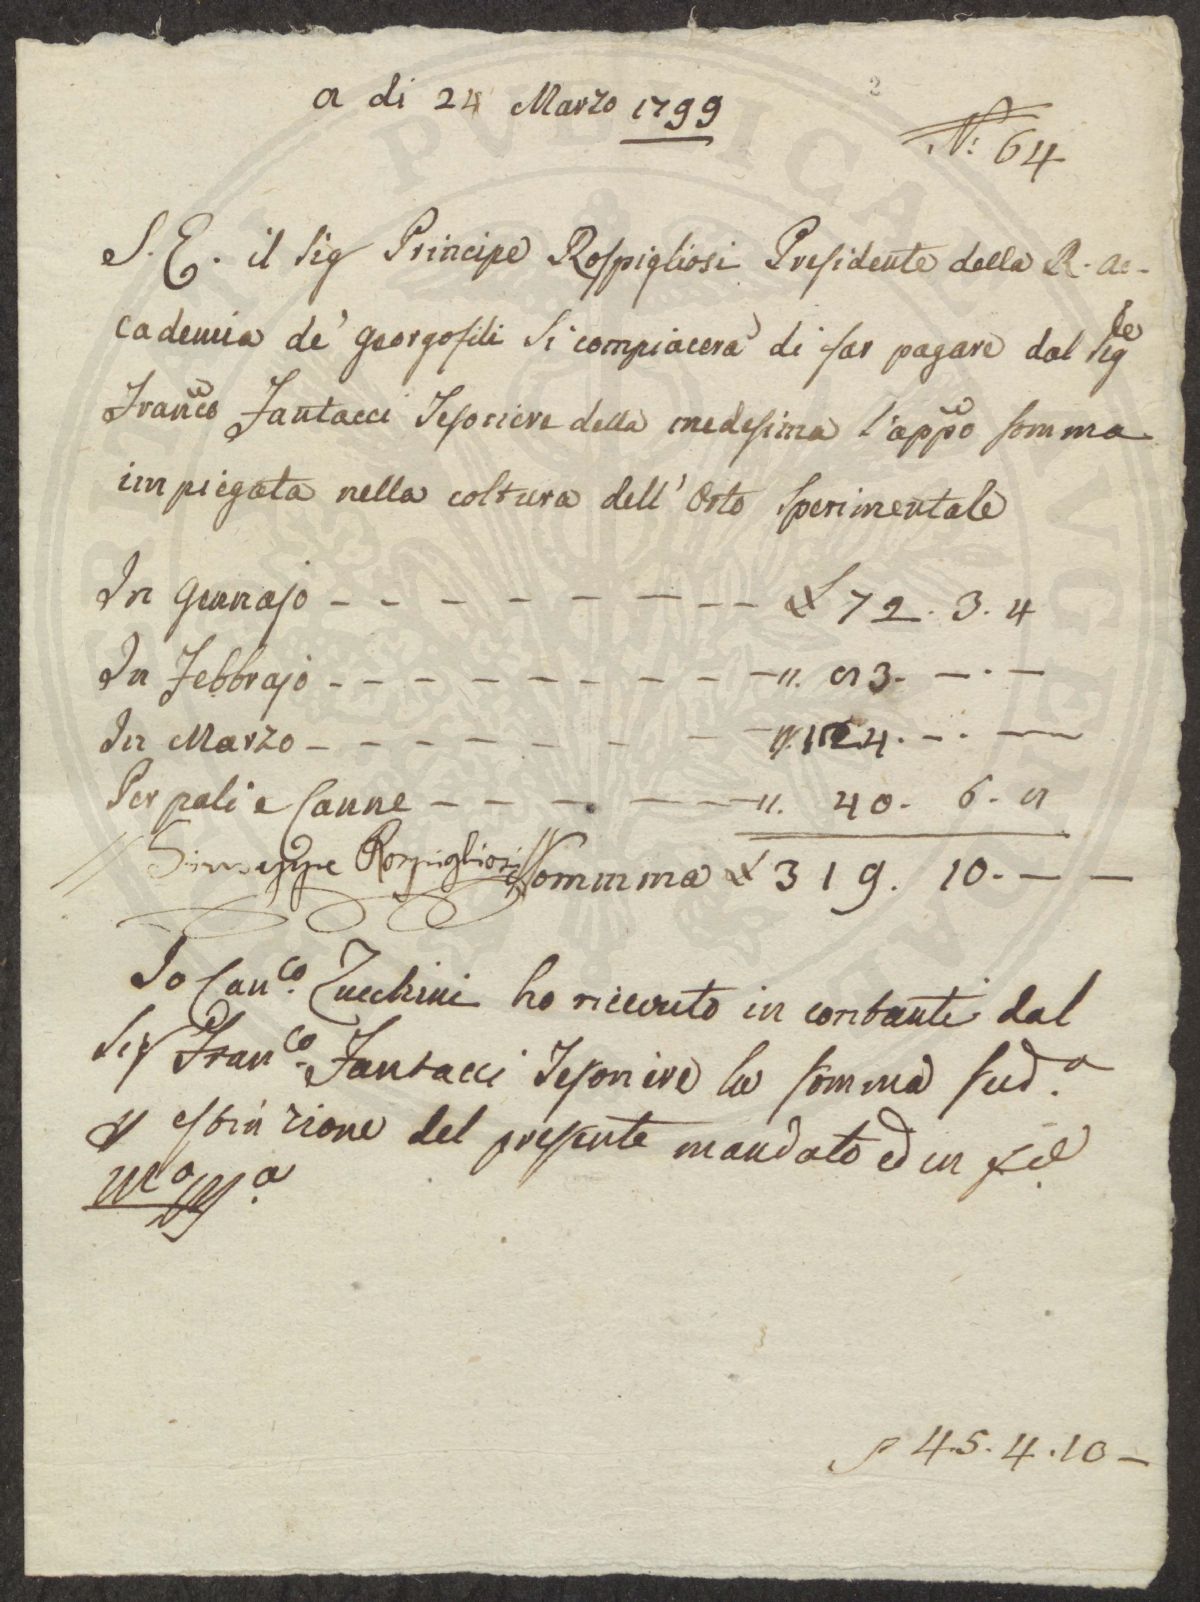 2
a di 24 Marzo 1799
N: 64
S. E. il Sig Principe Rospigliosi Presidente della R. Ac-
cademia de' Georgofili si compiacerà di far pagare dal Sigre
Franco Fantacci Tesoriere della medesima l'appo somma
impiegata nella coltura dell'Orto Sperimentale
In Gennajo - - - - - - - - £ 72. 3. 4
In Febbrajo - - - - - - - - - ". 83. —. —
In Marzo - - - - - - - - " 124. —. —
Per pali e Canne - - - - - - ". 40. 6. 8
Giuseppe Rospigliosi Sommma £ 319. 10. — —
Io Canco. Zucchini ho ricevuto in contanti dal
Sig Franco. Fantacci Tesoriere la somma suda.
p estinzione del presente mandato ed in fede
Mo Ppa
p 45. 4. 10 —